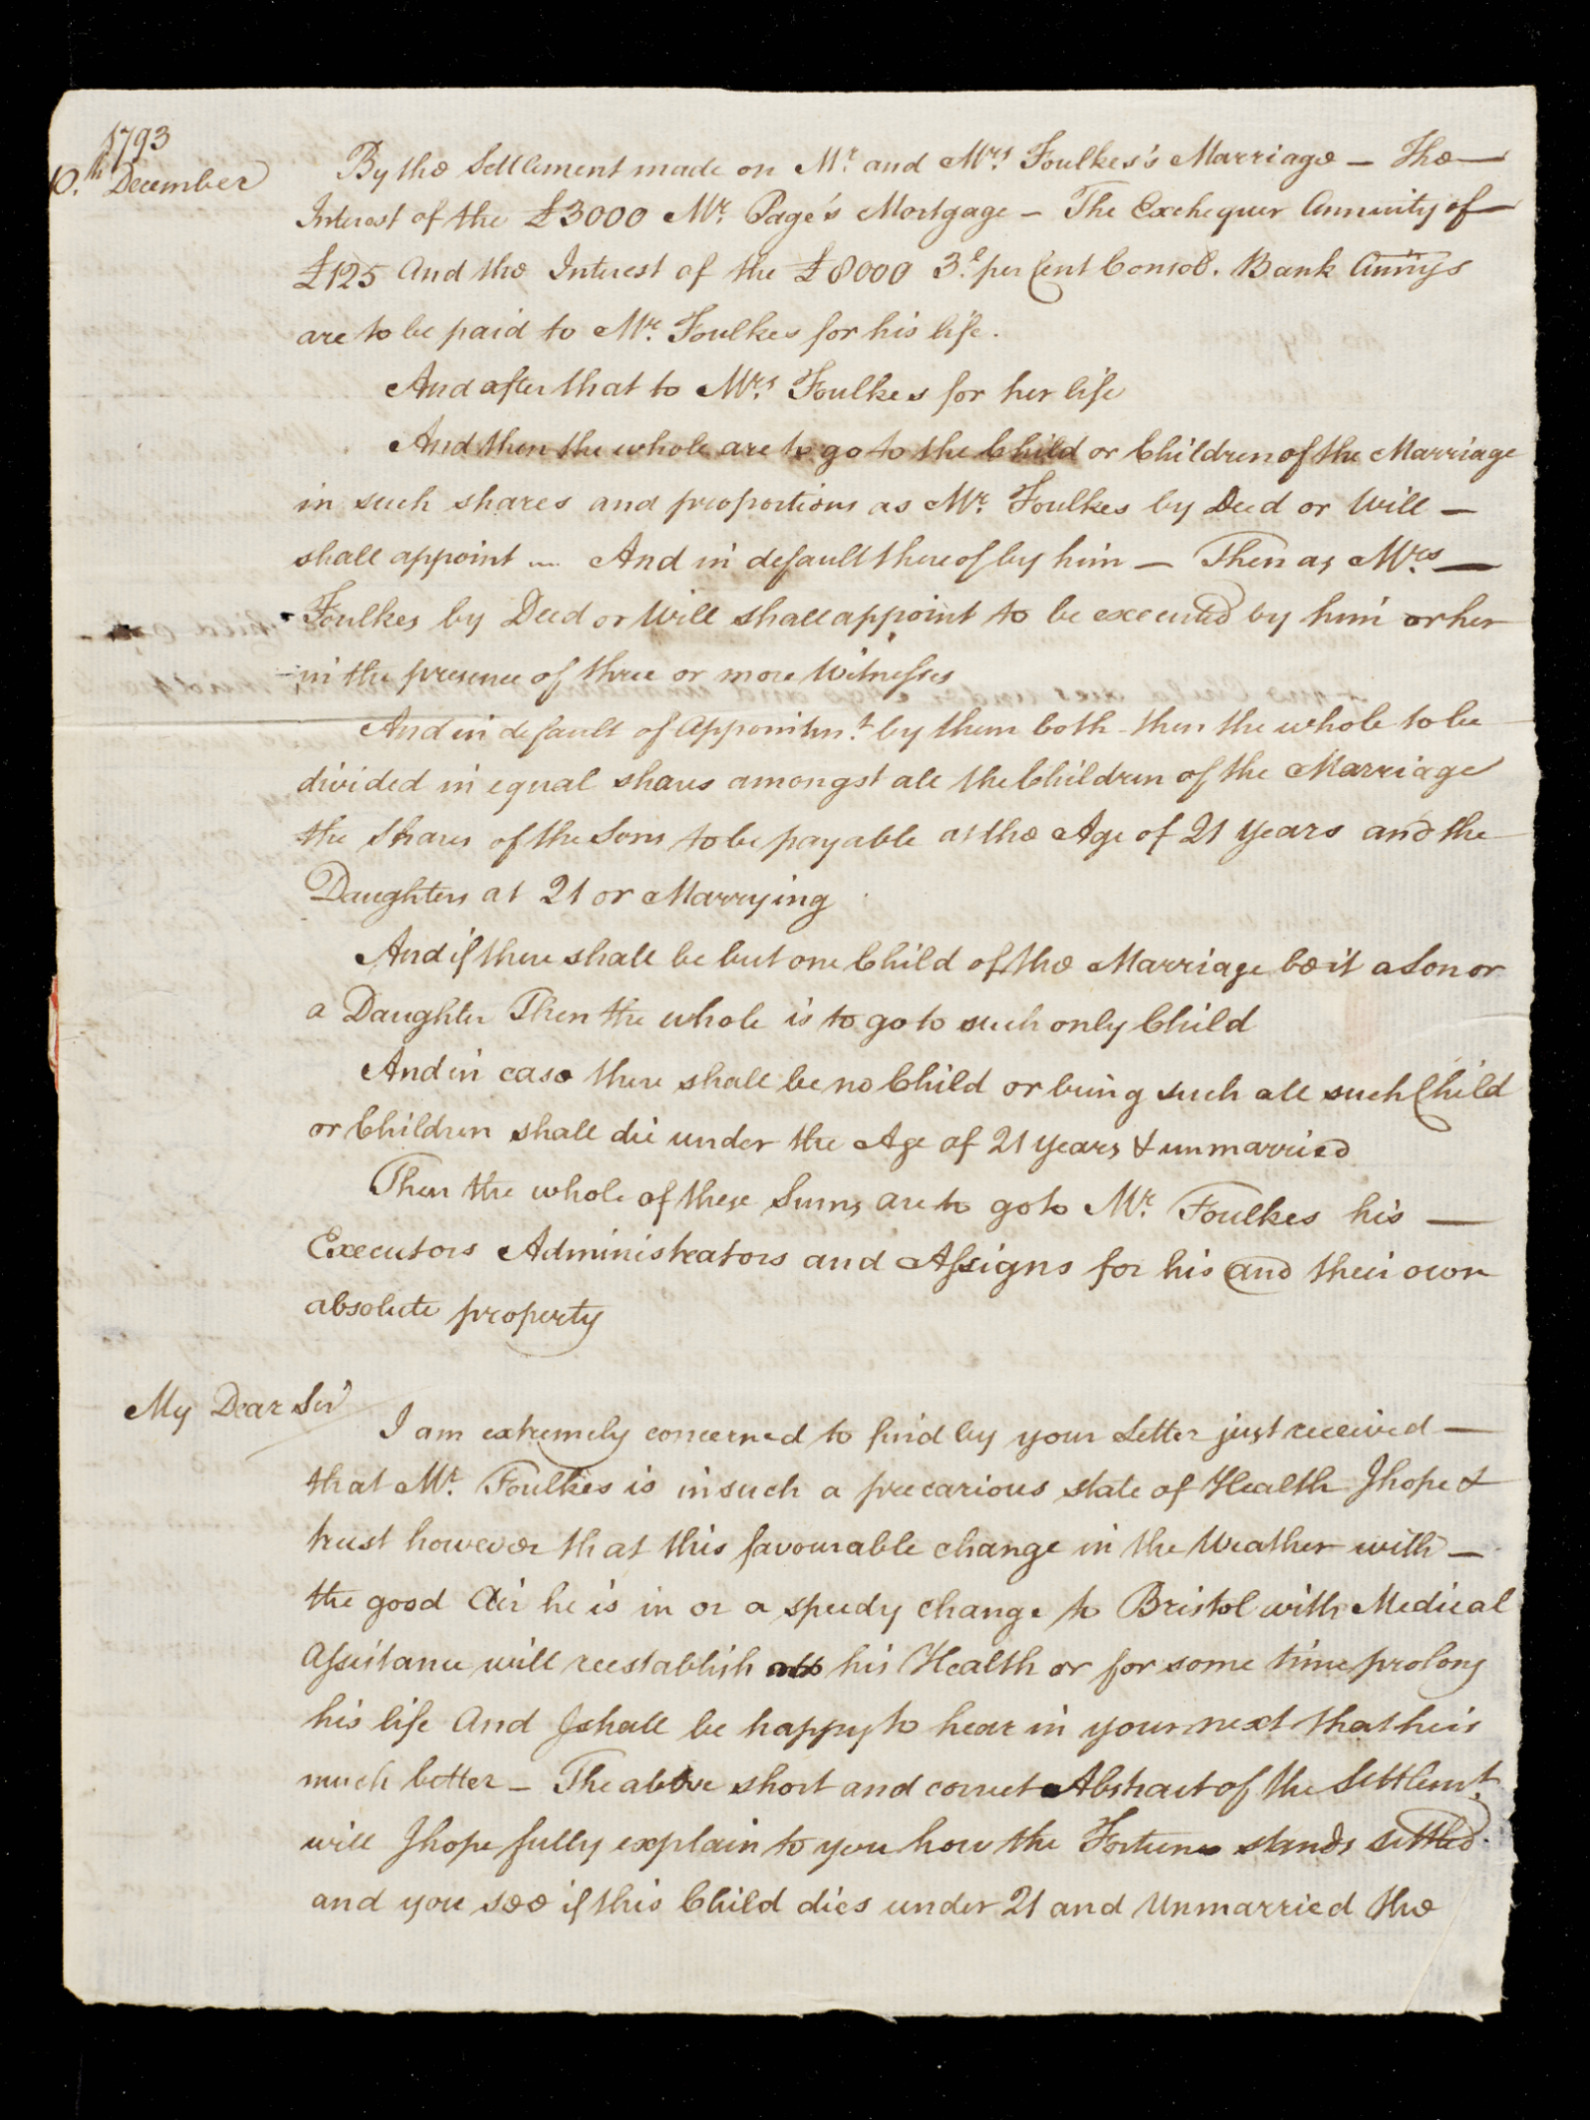 1793
10.th December
By the Settlement made on Mr. and Mrs. Foulkes's Marriage — The
Interest of the £3000 Mr. Page's Mortgage – The Exchequer Annuity of
£125 And the Interest of the £8000 3 per Cent Consol. Bank Annys
are to be paid to Mr. Foulkes for his life.
And after that to Mrs. Foulkes for her life
And then the whole are to go to the Child or Children of the Marriage
in such shares and proportions as Mr. Foulkes by Deed or Will —
shall appoint ... And in default thereof by him — Then as Mrs. —
Foulkes by Deed or Will shall appoint to be executed by him or her
in the presence of three or more Witnesses
And in default of Appointmt. by them both then the whole to be
divided in equal shares amongst all the Children of the Marriage
the Shares of the Sons to be payable at the Age of 21 Years and the
Daughters at 21 or Marrying
And if there shall be but one Child of the Marriage be it a Son or
a Daughter Then the whole is to go to such only Child
And in case there shall be no Child or being such all such Child
or Children shall die under the Age of 21 years & unmarried
Then the whole of these Sums are to go to Mr. Foulkes his —
Executors Administrators and Assigns for his and their own
absolute property
My Dear Sir
I am extremely concerned to find by your Letter just received —
that Mr. Foulkes is in such a precarious state of Health I hope &
trust however that this favourable change in the Weather with —
the good Air he is in or a speedy change to Bristol with Medical
Assistance will reestablish his Health or for some time prolong
his life And I shall be happy to hear in your next that he is
much better – The above short and correct Abstract of the Settlemt.
will I hope fully explain to you how the Fortune stands settled.
and you see if this Child dies under 21 and Unmarried the